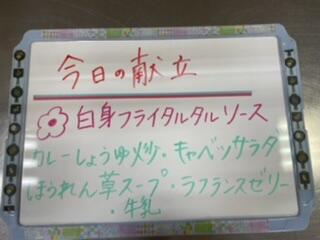 今日の献立
白身フライタルタルソース
カレーしょうゆ炒・キャベツサラダ
ほうれん草スープ・ラフランスゼリー
・牛乳